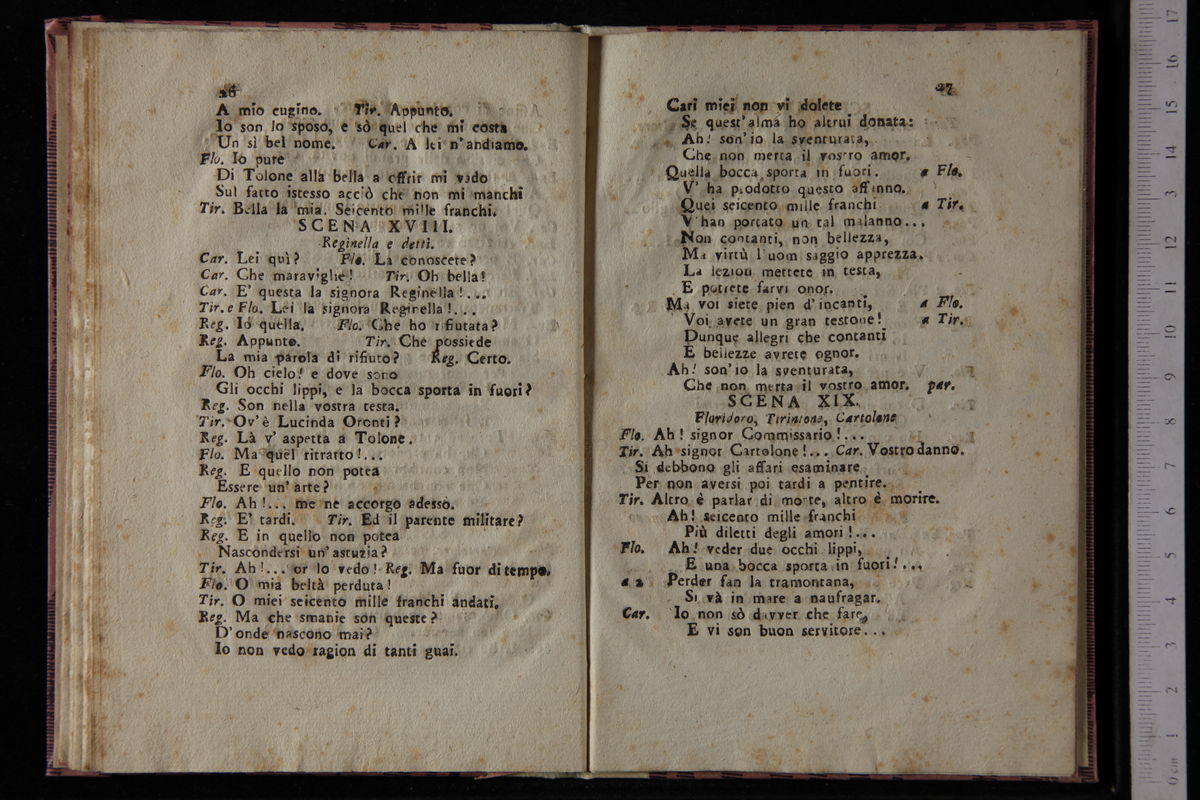 26
A mio cugino. Tir. Appunto.
Io son lo sposo, e sò quel che mi costa
Un sì bel nome. Car. A lei n'andiamo.
Flo. Io pure
Di Tolone alla bella a offrir mi vado
Sul fatto istesso acciò che non mi manchi
Tir. Bella la mia. Seicento mille franchi.
SCENA XVIII.
Reginella e detti.
Car. Lei quì? Flo. La conoscete?
Car. Che maraviglie! Tir. Oh bella!
Car. E' questa la signora Reginella!...
Tir. e Flo. Lei la signora Reginella!...
Reg. Io quella. Flo. Che ho rifiutata?
Reg. Appunto. Tir. Che possiede
La mia parola di rifiuto? Reg. Certo.
Flo. Oh cielo! e dove sono
Gli occhi lippi, e la bocca sporta in fuori?
Reg. Son nella vostra testa.
Tir. Ov'è Lucinda Oronti?
Reg. Là v' aspetta a Tolone.
Flo. Ma quel ritratto!...
Reg. E quello non potea
Essere un' arte?
Flo. Ah!... me ne accorgo adesso.
Reg. E' tardi. Tir. Ed il parente militare?
Reg. E in quello non potea
Nascondersi un' astuzia?
Tir. Ah!... or lo vedo! Reg. Ma fuor di tempo.
Flo. O mia beltà perduta!
Tir. O miei seicento mille franchi andati.
Reg. Ma che smanie son queste?
D'onde nascono mai?
Io non vedo ragion di tanti guai.
27
Cari miei non vi dolete
Se quest'alma ho altrui donata:
Ah! son'io la sventurata,
Che non merta il vostro amor.
Quella bocca sporta in fuori. a Flo.
V' ha prodotto questo affanno.
Quei seicento mille franchi a Tir.
V'han portato un tal malanno...
Non contanti, non bellezza,
Ma virtù l'uom saggio apprezza.
La lezion mettete in testa,
E potrete farvi onor.
Ma voi siete pien d'incanti, a Flo.
Voi avete un gran testone! a Tir.
Dunque allegri che contanti
E bellezze avrete ognor.
Ah! son'io la sventurata,
Che non merta il vostro amor. par.
SCENA XIX.
Floridoro, Tirintone, Cartolone
Flo. Ah! signor Commissario!...
Tir. Ah signor Cartolone!... Car. Vostro danno.
Si debbono gli affari esaminare
Per non aversi poi tardi a pentire.
Tir. Altro è parlar di morte, altro è morire.
Ah! seicento mille franchi
Più diletti degli amori!...
Flo. Ah! veder due occhi lippi,
E una bocca sporta in fuori!...
a 2 Perder fan la tramontana,
Si và in mare a naufragar.
Car. Io non sò davver che fare,
E vi son buon servitore...